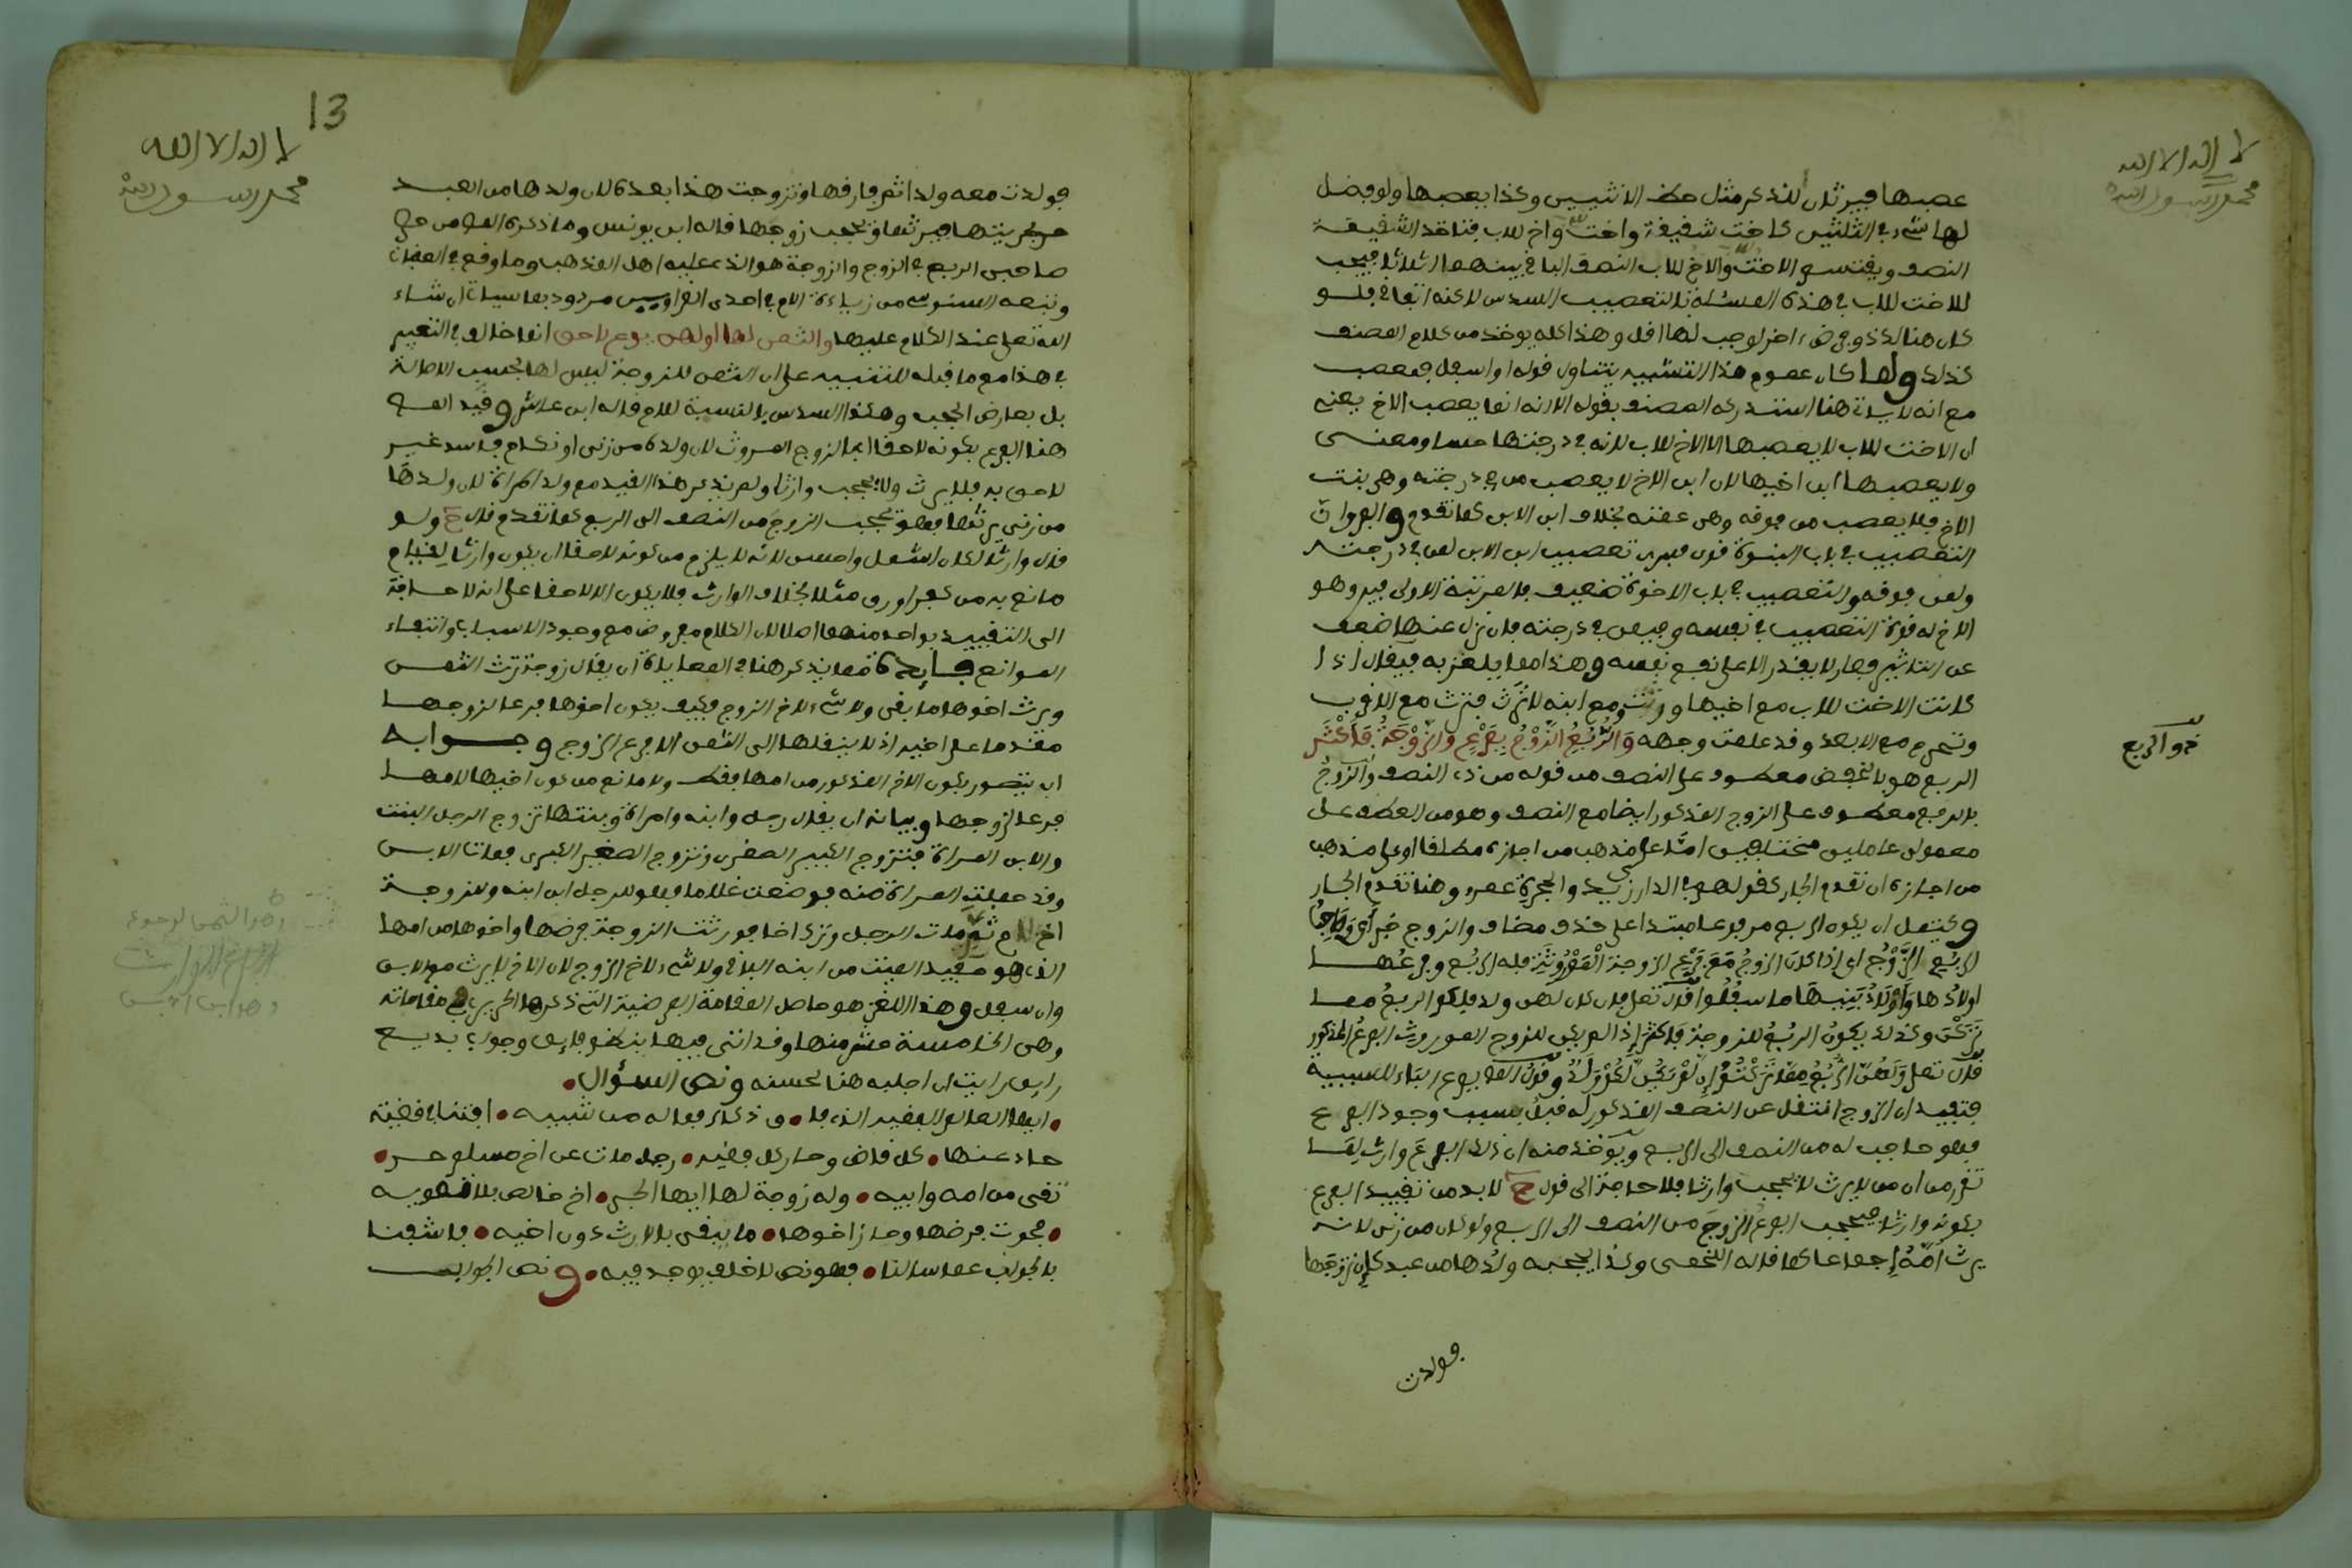 لا اله الا الله
محمد رسول الله
عصبها فيرثان للذكر مثل حظ الانثيين وكذا يعصبها ولو فضل
لها شيء في الثلثين كاخت شقيقة واخت واخ للاب فتاخذ الشقيقة
النصف ويقتسم الاخت والاخ للاب النصف الباقي بينهما اثلاثا فيجب
للاخت للاب في هذه المسئلة بالتعصيب السدس لاكنه اتفاقي فلو
كان هنالك ذو فرض اخر لوجب لها اقل وهذا كله يوخذ من كلام المصنف
كذلك ولما كان عموم هذا التشبيه يتناول قوله او اسفل فمعصب
مع انه لا ياتي هنا استدركه المصنف بقوله الا انه انما يعصب الاخ يعني
ان الاخت للاب لا يعصبها الا الاخ للاب لانه في درجتها حسا ومعنى
ولا يعصبها ابن اخيها لان ابن الاخ لا يعصب من في درجته وهي بنت
الاخ فلا يعصب من فوقه وهي عمته بخلاف ابن الابن كما تقدم والفرق ان
التعصيب في باب البنوة قوي فسرى تعصيب ابن الابن لمن في درجته
ولمن فوقه والتعصيب في باب الاخوة ضعيف فالمرتبة الاولى فيه وهو
الاخ له قوة التعصيب في نفسه وفيمن في درجته فان نزل عنها ضعف
عن التاثير فصار لا يقدر الا على نفع نفسه وهذا مما يلغز به فيقال اذا
كانت الاخت للاب مع اخيها ورثت ومع ابنه لا ترث فترث مع الاقرب
وتحرم مع الابعد وقد علمت وجهه وَالرُّبُعِ الزَّوْجُ بِفَرْعٍ وَالزَّوْجَةُ فَأَكْثَرُ
الربع هو بالخفض معطوف على النصف من قوله من ذي النصف والزوجُ
بالرفع معطوف على الزوج المذكور ايضا مع النصف وهو من العطف على
معمولي عاملين مختلفين اما على مذهب من اجازه مطلقا او على مذهب
من اجازه ان تقدم الجار كقولهم في الدار زيد والحجرة عمرو وهنا تقدم الجار
ويحتمل ان يكون الربع مرفوعا مبتدا على حذف مضاف والزوج خبر أي وصاحبُ
الربُعِ الزَّوْجُ اي اذا كان الزوجُ مَعَ فَرْعِ الزوجة الْمَوْرُوثَةِ فله الربُع وفرعُها
اولادُها وَأَوْلَادُ بَنِيهَا ما سفُلُوا قال تعلى فان كان لهن ولد فلكم الربعُ مما
تَرَكْنَ وكذلك يكونُ الربُعُ للزوجة فاكثر إذا لم يكن للزوج الموروث الفرعُ المذكور
قال تعلى وَلَهُنَّ الرُّبُعُ مِمَّا تَرَكْتُمْ إِنْ لَمْ يَكُنْ لَكُمْ وَلَدٌ وقول المص بفرع الباء للسببية
فتفيد ان الزوج انتقل عن النصف المذكور له قبلُ بسبب وجود الفرع
فهو حاجب له من النصف الى الربع ويوخذ منه ان ذلك الفرعَ وارث لما
تقرر من ان من لا يرث لا يحجب وارثا فلا حاجة الى قول ح لا بد من تقييد الفرع
بكونه وارثا فيحجب الفرعُ الزوجَ من النصف الى الربع ولو كان من زنى لانه
يرث أُمَّهُ إجماعا كما قاله اللخمي وكذا يحجبه ولدُها من عبد كإن تزوجها
ذو الربع
فولدت
13
لا اله الا الله
محمد رسول الله
فولدت معه ولدا ثم فارقها وتزوجت هذا بعده لان ولدها من العبد
حر بحريتها فيرثها ويحجب زوجها قاله ابن يونس وما ذكره المص من حق
صاحبي الربع في الزوج والزوجة هو الذي عليه اهل المذهب وما وقع في العقبات
وتبعه السنوسي من زيادة الام في احدى الغراوين مردود بما سيات ان شاء
الله تعلى عند الكلام عليها والثمن لها او لهن بفرع لاحق انما خالف في التعبير
في هذا مع ما قبله للتنبيه على ان الثمن للزوجة ليس لها بحسب الاصالة
بل بعارض الحجب وهكذا السدس بالنسبة للام قاله ابن عاشر وقيد المص
هنا الفرع بكونه لاحقا ابا الزوج الموروث لان ولده من زنى او نكاح فاسد غير
لاحق به فلا يرث ولا يحجب وارثا ولم يذكر هذا القيد مع ولد المراة لان ولدها
من زنى يرثها فهو يحجب الزوج من النصف الى الربع كما تقدم قال ح ولو
قال وارث لكان اشمل واحسن لانه لا يلزم من كونه لاحقا ان يكون وارثا لقيام
مانع به من كفر او رق مثلا بخلاف الوارث فلا يكون الا لاحقا على انه لا حاجة
الى التقييد بواحد منهما اصلا لان الكلام مفروض مع وجود الاسباب وانتفاء
الموانع فائدة مما يذكر هنا في المعاياة ان يقال زوجة ترث الثمن
ويرث اخوها ما بقي ولا شيء لاخ الزوج فكيف يكون اخوها فرعا لزوجها
مقدما على اخيه اذ لا ينقلها الى الثمن الا فرع الزوج وجوابه
ان يتصور بكون الاخ المذكور من امها فقط ولا مانع من كون اخيها لامها
فرعا لزوجها وبيانه ان يقال رجل وابنه وامراة وبنتها تزوج الرجل البنت
والابن المراة فتزوج الكبير الصغرى وتزوج الصغير الكبرى فمات الابن
وقد حملت المراة منه فوضعت غلاما فهو للرجل ابن ابنه وللزوجة
اخ لام ثم مات الرجل وترك اخا فورثت الزوجة فرضها واخوها من امها
الذي هو حفيد الميت من ابنه الباقي ولا شيء لاخ الزوج لان الاخ لا يرث مع الابن
وان سفل وهذا اللغز هو حاصل المقامة الفرضية التي ذكرها الحريري في مقاماته
وهي الخامسة عشر منها وقد اتى فيها بنظم فايق وجواب بديع
رايق رايت ان اجلبه هنا لحسنه ونص السؤال •
• ايها العالم الفقيه الذي فا • ق ذكاء فما له من شبيه • افتنا في قضية
حاد عنها • كل قاض وحار كل فقيه • رجل مات عن اخ مسلم حر •
تقي من امه وابيه • وله زوجة لها ايها الحبر • اخ خالص بلا تمويه
• فحوت فرضها وحاز اخوها • ما تبقى بالارث دون اخيه • فاشفنا
بالجواب عما سالنا • فهو نص لا خلف يوجد فيه • ونص الجواب